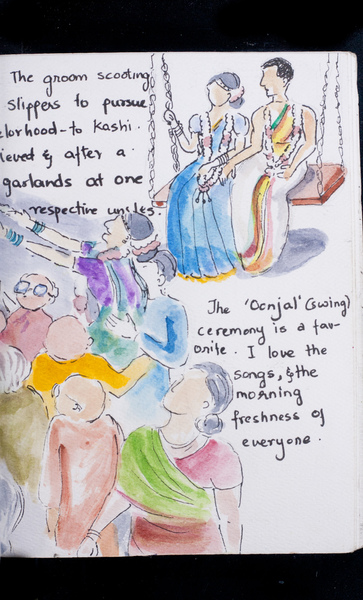 The groom scooting
slippers to pursue
elorhood - to Kashi.
ieved & after a
garlands at one
respective uncles.
The 'Oonjal' (swing)
ceremony is a fav-
orite. I love the
songs, & the
morning
freshness of
everyone.